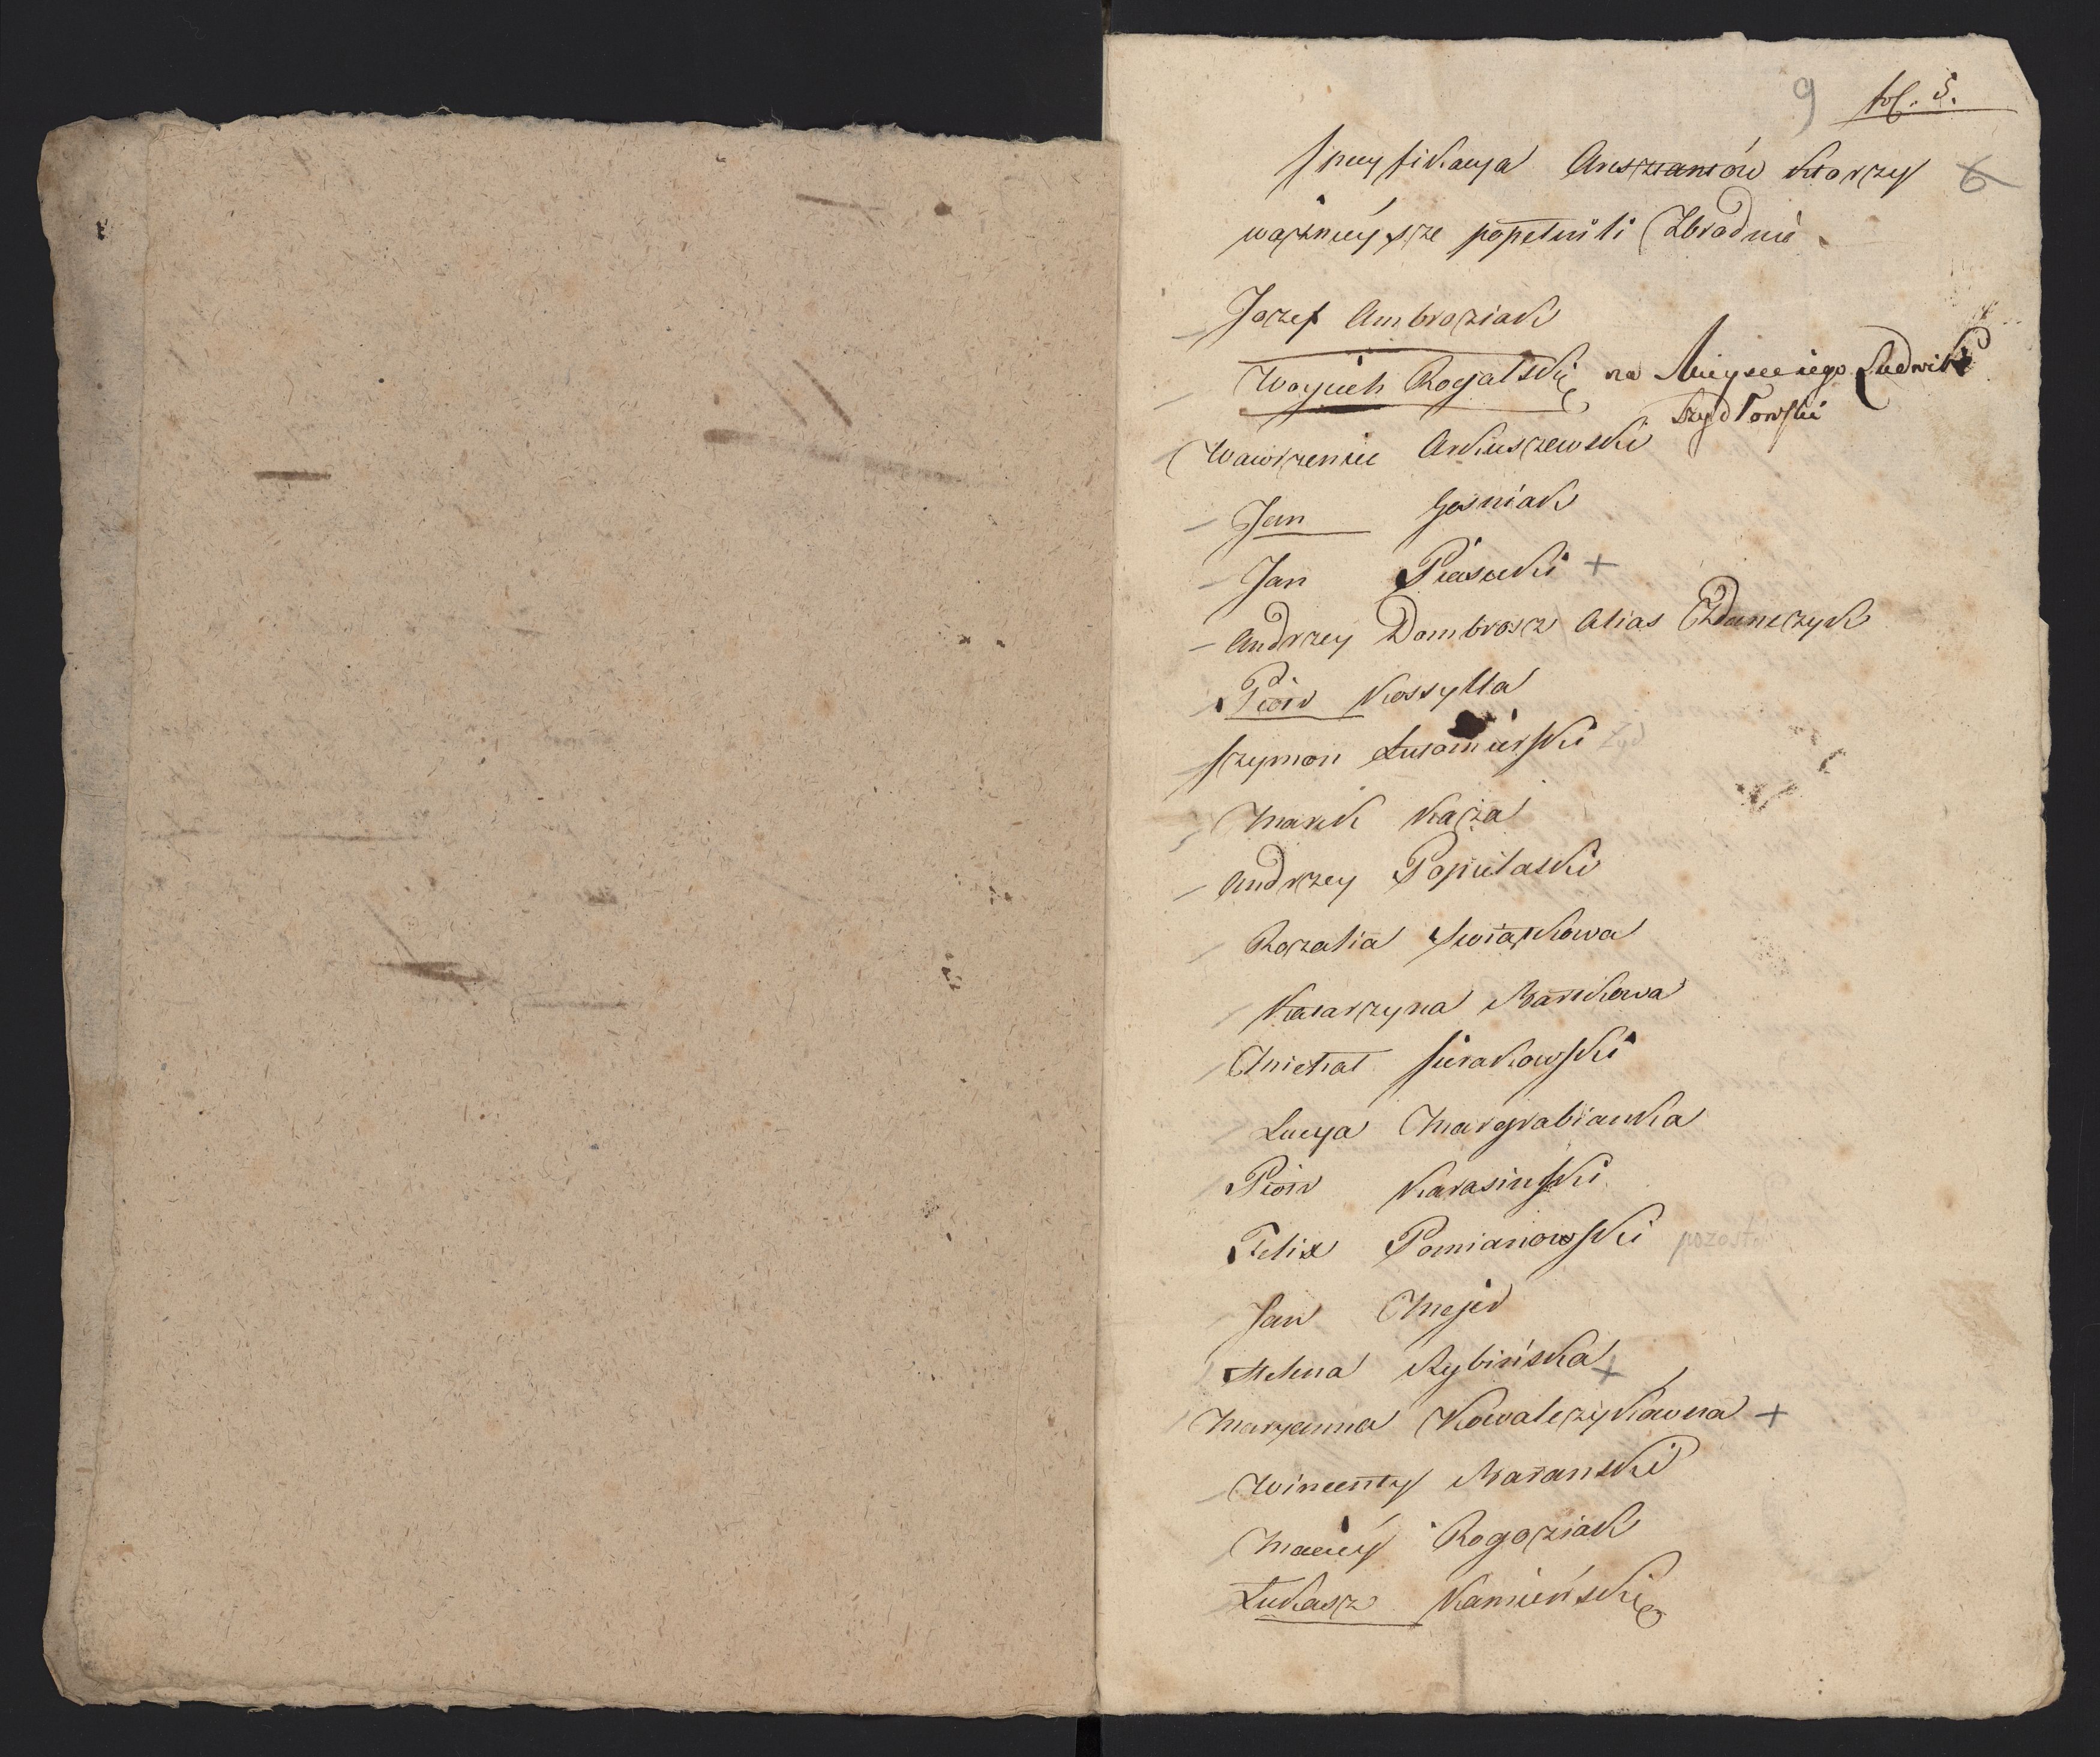 9 fol. 5.
Specyfikacya Aresztantów ktorzy 6
ważnieysze popełnili Zbrodnie
Jozef Ambroziak
Woyciech Rogalski na Mieysce iego Ludwik
Szydłowski
Wawrzeniec Arkuszewski
Jan Gosniak
Jan Piasecki +
Andrzey Dombrosz Alias Zdunczyk
Piotr Kossylla
Szymon Lutomierski Żyd
Marek Kaza
Andrzey Popielaski
Rozalia
Katarzyna
Michał Sierakowski
Lucya Margrabianka
Piotr Karasinski
Felix Pomianowski pozost
Jan Mejer
Helena Rybińska +
Maryanna Kowalczykowna +
Wincenty Baranski
Maciey Rogoziak
Łukasz Kamieński